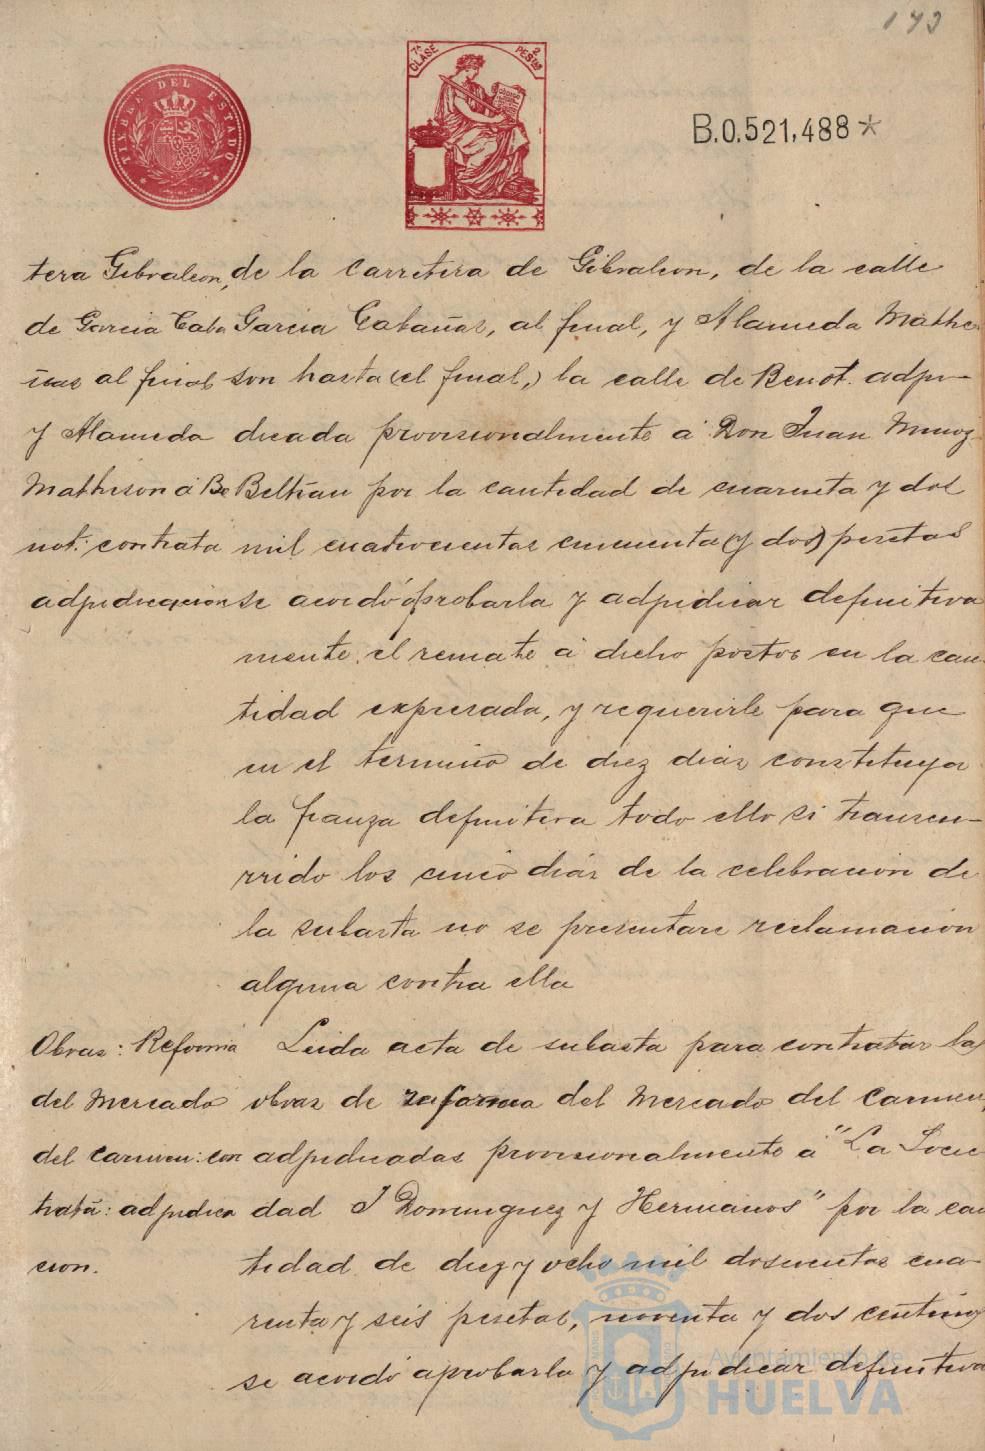 173
TIMBRE DEL ESTADO
7ª CLASE 2 PESTAS
B.0.521,488*
tera Gibraleon, de la carretera de Gibraleon, de la calle
de Garcia Caba Garcia Cabañas, al final, y Alameda Mathe-
ñas al final son hasta (el final,) la calle de Benot. adju-
y Alameda dicada provisionalmente á Don Juan Munoz
Mathison á Be Beltrán por la cantidad de cuarenta y dos
not: contrata mil cuatrocientas cincuenta (y dos) pesetas
adjudicacion se acordó aprobarla y adjudicar definitiva
mente el remate á dicho postor en la can-
tidad expresada, y requerirle para que
en el termino de diez dias constituya
la fianza definitiva todo ello si transcu-
rrido los cinco dias de la celebracion de
la subasta no se presentare reclamacion
alguna contra ella
Obras: Reforma Leida acta de subasta para contratar las
del Mercado obras de reforma del Mercado del Carmen,
del Carmen: con adjudicadas provisionalmente á "La Socie
trata: adjudica dad J Dominguez y Hermanos" por la can
cion. tidad de diez y ocho mil doscientas cua-
renta y seis pesetas, noventa y dos centimos
se acordó aprobarla y adjudicar definitiva
Ayuntamiento de
HUELVA